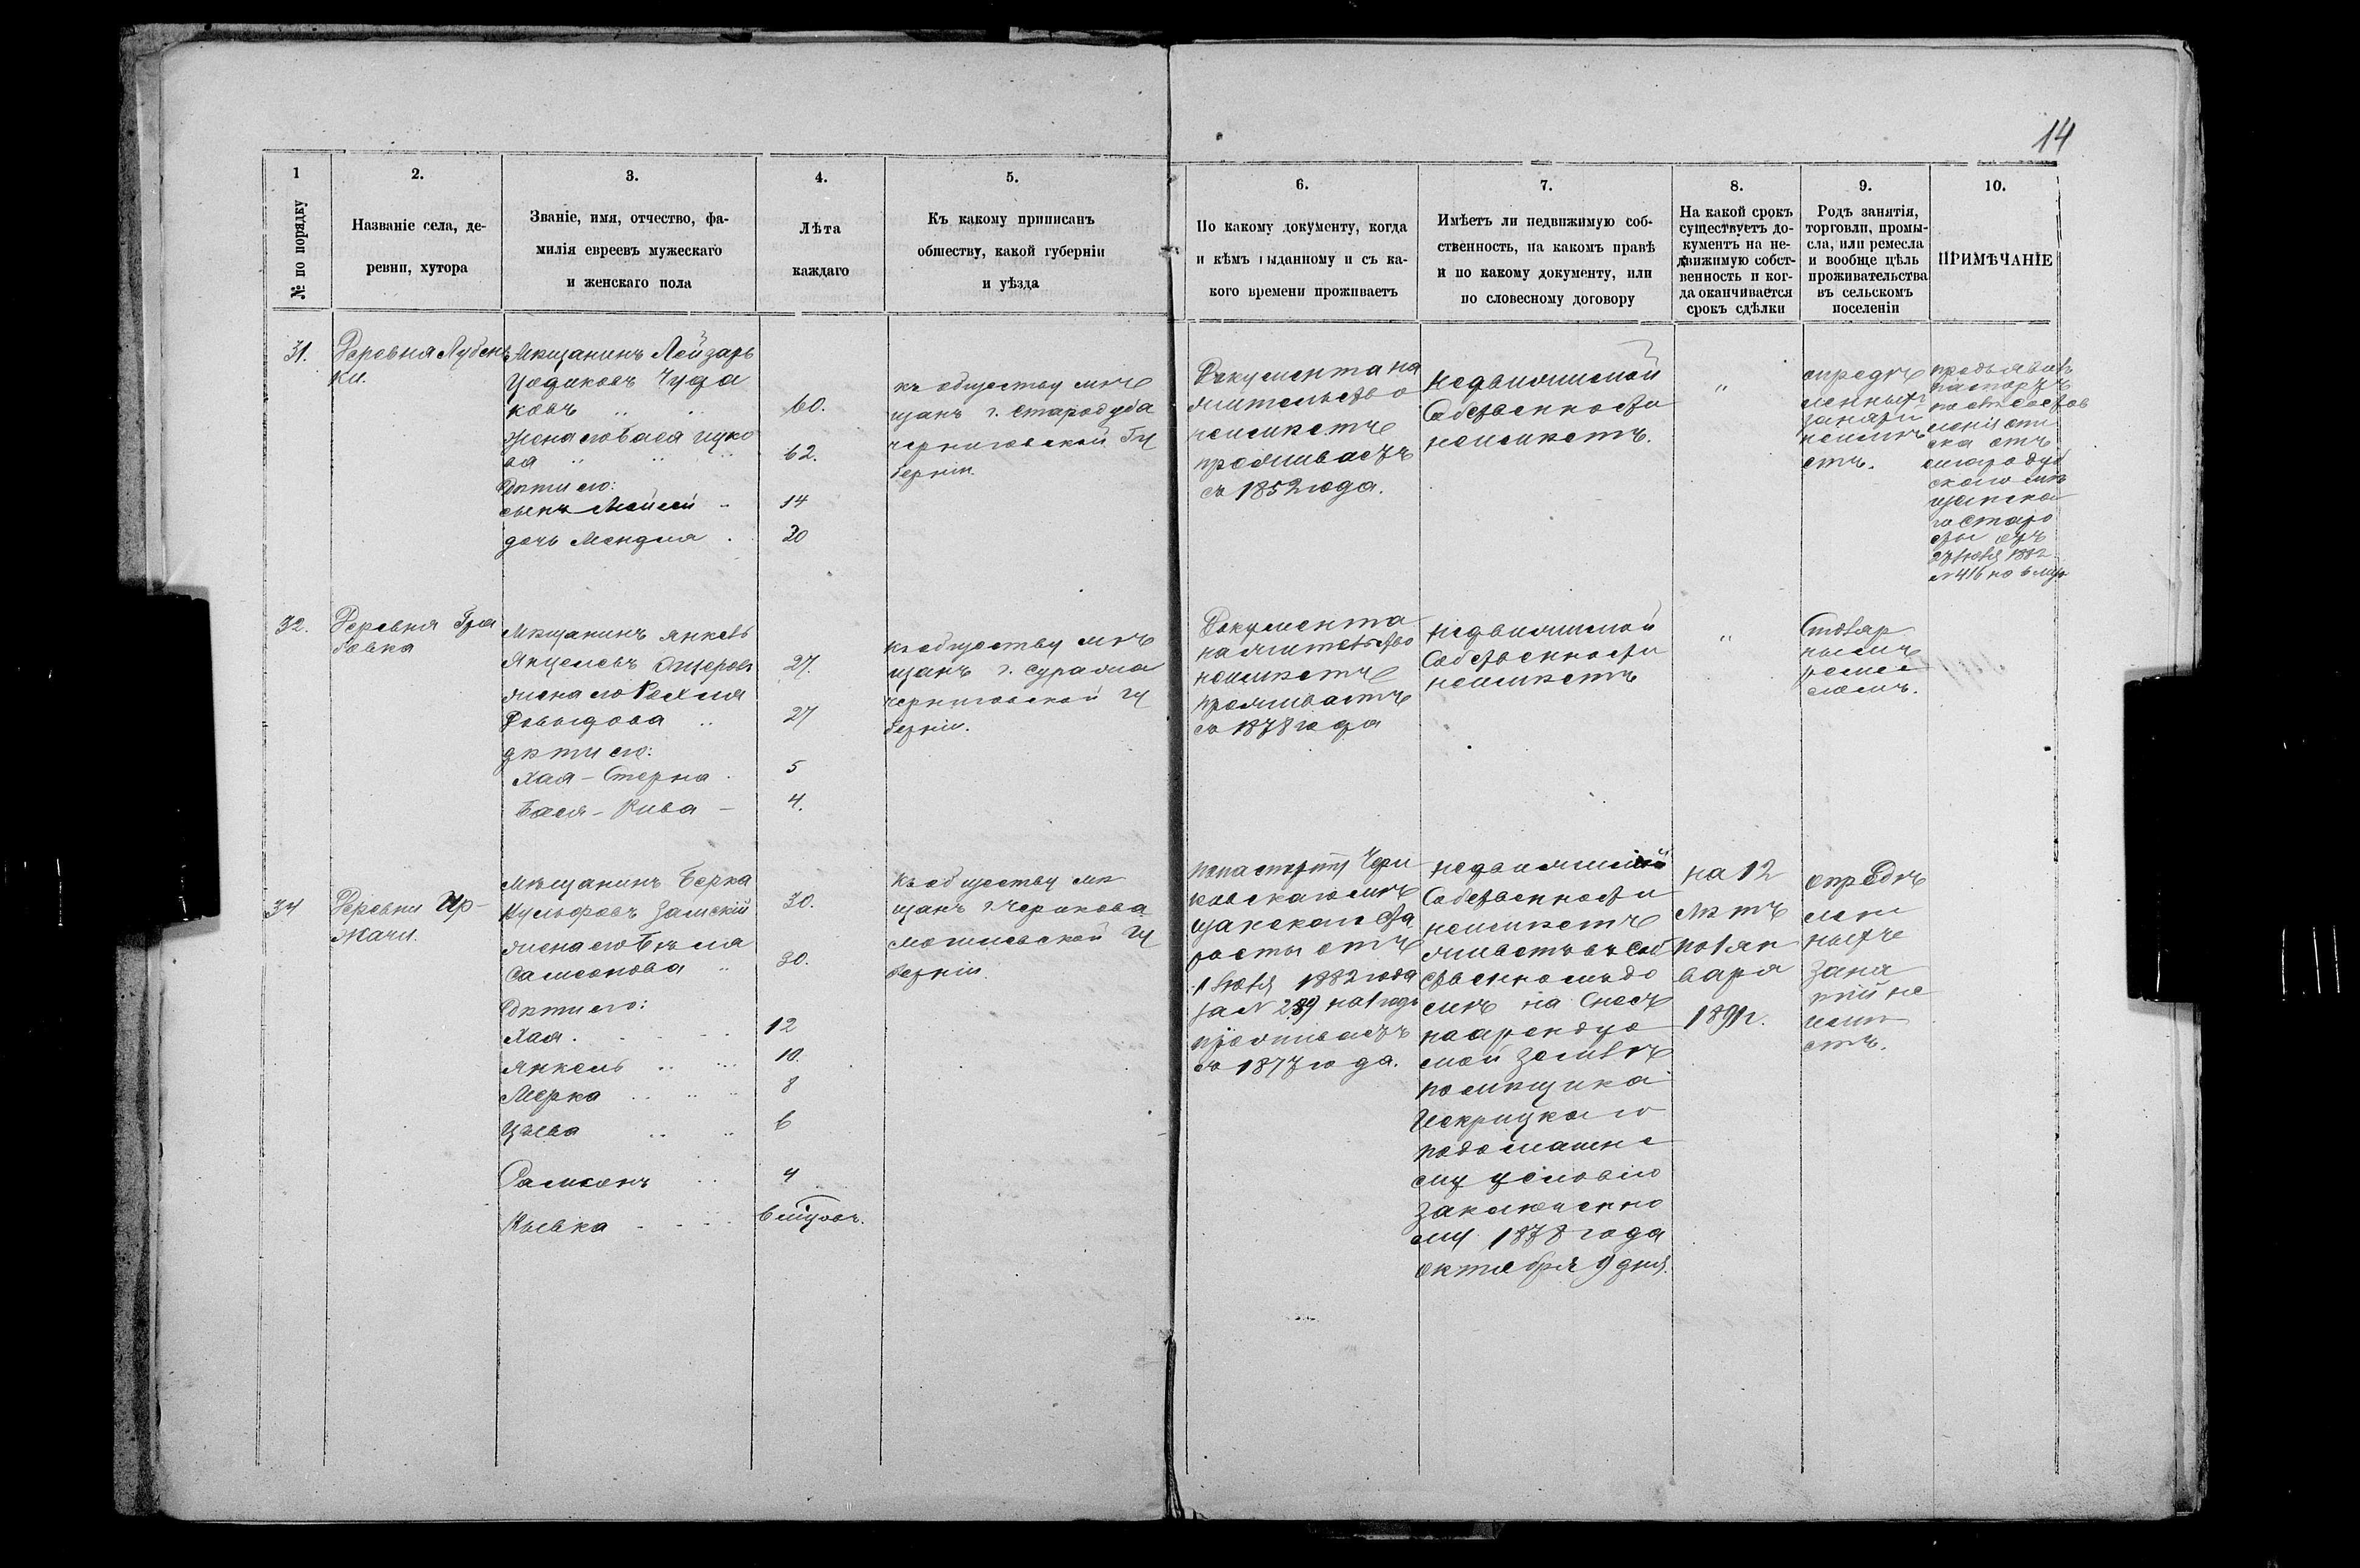 14
1
№ по порядку
2.
Названіе села, де-
ревни, хутора
3.
Званіе, имя, отчество, фа-
милія евреевъ мужескаго
и женскаго пола
4.
Лѣта
каждаго
5.
Къ какому приписанъ
обществу, какой губерніи
и уѣзда
6.
По какому документу, когда
и кѣмъ выданному и съ ка-
кого времени проживаетъ
7.
Имѣетъ ли недвижимую соб-
ственность, на какомъ правѣ
и по какому документу, или
по словесному договору
8.
На какой срокъ
существуетъ до-
кументъ на не-
движимую собст-
венность и ког-
да оканчивается
срокъ сдѣлки
9.
Родъ занятія,
торговли, промы-
сла, или ремесла
и вообще цѣль
проживательства
въ сельскомъ
поселеніи
10.
ПРИМѢЧАНІЕ
31.
Деревня Лубен
ки.
Мѣщанинъ Лейзаръ
Цодиковъ Чуда
ковъ
60.
жена его Бася
62.
Дѣти его:
сынъ Мойсей
14
дочь Мендля
20
къ обществу мѣ
щанъ г. Стародуба
черниговской Гу
берніи
Документа на
жительство
неимѣетъ
проживаетъ
съ 1852 года.
недвижимой
Собственности
неимѣетъ.
"
опредѣ
ленныхъ
занятій
неимѣ
етъ.
ска отъ
стародуб
скаго мѣ
щанска
го Старо
сты отъ
1882
№ 416 на 6 мѣс
32.
Деревня Гра
бовка
Мѣщанинъ Янкель
27.
жена его Рохля
Довыдова
27
дѣти его:
Хая - Стерна
5
Бася - Рива -
4.
къ обществу мѣ
щанъ г. Суража
черниговской гу
берніи.
Документа
на жительство
неимѣетъ
проживаетъ
съ 1878 года
недвижимой
Собственности
неимѣетъ
"
Столяр
нымъ
ремес
ломъ.
34
Деревни Ир-
жачи.
Мѣщанинъ Берка
30.
жена его Бѣля
Самсонова
30.
Дѣти его:
Хая
12
Янкель
10.
Мерка
8
Цыва
6
Самсонъ
4
Рывка
6 мѣсяцовъ.
Къ обществу мѣ
щанъ г. Черикова
Могилевской гу
берніи.
По паспорту Чери
ковскаго мѣ
щанскаго Ста
росты отъ
1 Іюля 1882 года
за № 289 на 1 годъ
проживаетъ
съ 1877 года.
недвижимой
Собственности
неимѣетъ
живетъ въ соб
ственномъ до
мѣ на Сносъ
на арендуе
мой землѣ
помѣщика
Искрицкаго
по домашне
му условію
заключенно
му 1878 года
октября 9 дня.
на 12
лѣтъ
по 1 ян
варя
1891 г.
опредѣ
лен
ныхъ
заня
тій не
имѣ
етъ.